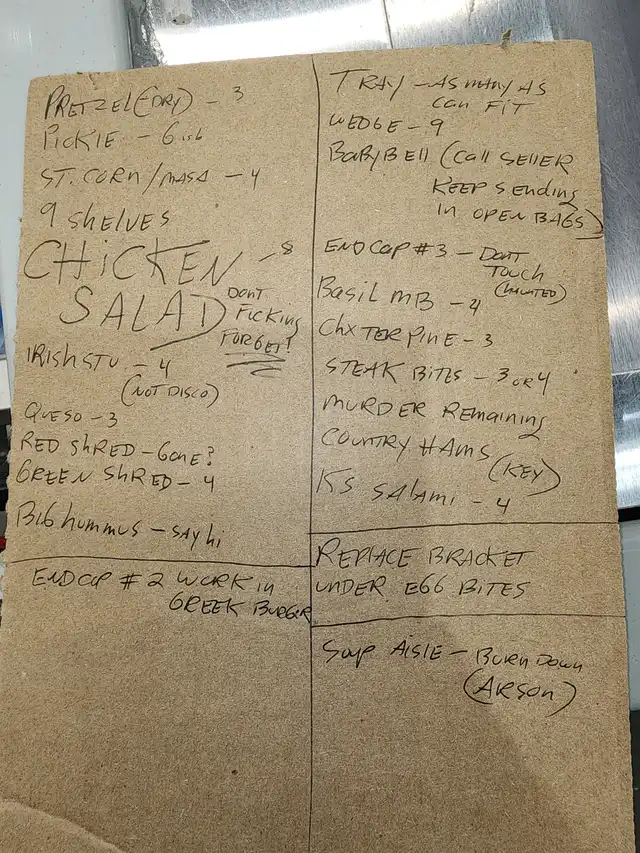 PRETZEL (DRY) - 3
PICKLE - 6 ish
ST. CORN/MASA - 4
9 SHELVES
CHICKEN - 8
SALAD
DONT
FICKING
FORGET!
IRISH STU - 4
(NOT DISCO)
QUESO - 3
RED SHRED - GONE?
GREEN SHRED - 4
BIG hummus - SAY hi
ENDCAP # 2 WORK in
GREEK BURGER
TRAY - AS MANY AS
CAN FIT
WEDGE - 9
BABYBELL (CALL SELLER
KEEP SENDING
IN OPEN BAGS)
ENDCAP #3 - DONT
TOUCH
(HAUNTED)
BASIL MB - 4
CHX TERPINE - 3
STEAK BITES - 3 OR 4
MURDER REMAINING
COUNTRY HAMS
(KEY)
KS SALAMI - 4
REPLACE BRACKET
UNDER EGG BITES
Soup AISLE - BURN DOWN
(ARSON)